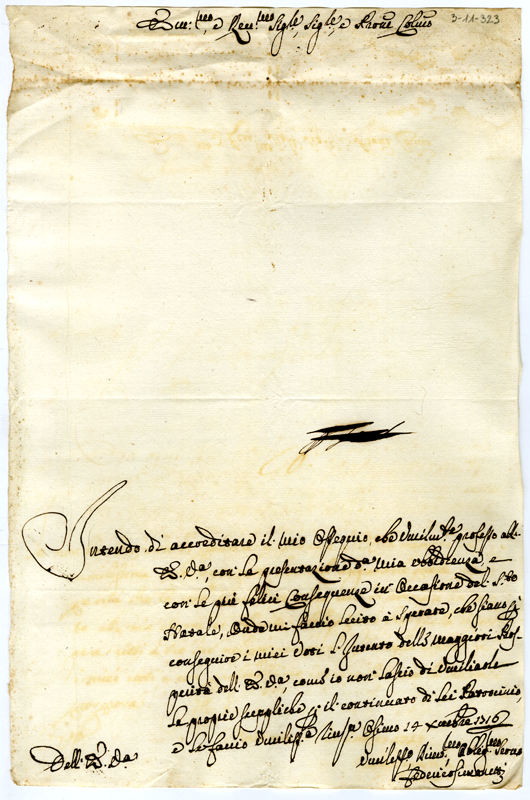 3-11-323
Em.mo, e Rev.mo Sig.re, Sig.re, e Prone Colmo
Intendo di accreditare il mio Ossequio, che umilm.te professo all'
E. V.a, con la presentazione d.a mia obbedienza, e
con le più felici Conseguenze in Occasione del S.to
Natale, Onde mi faccio lecito a sperare, che siano p
conseguire i miei voti l'Intento delle maggiori Pros-
perità dell' E. V.a, com'io non lascio di umiliarle
le proprie suppliche p il continuato di Lei Patrocinio,
e le faccio umiliss.a Osimo 14 Xmbre 1716
Dell' E. V.a
Umiliss.o Obblig. Servo
Federico Simonetti